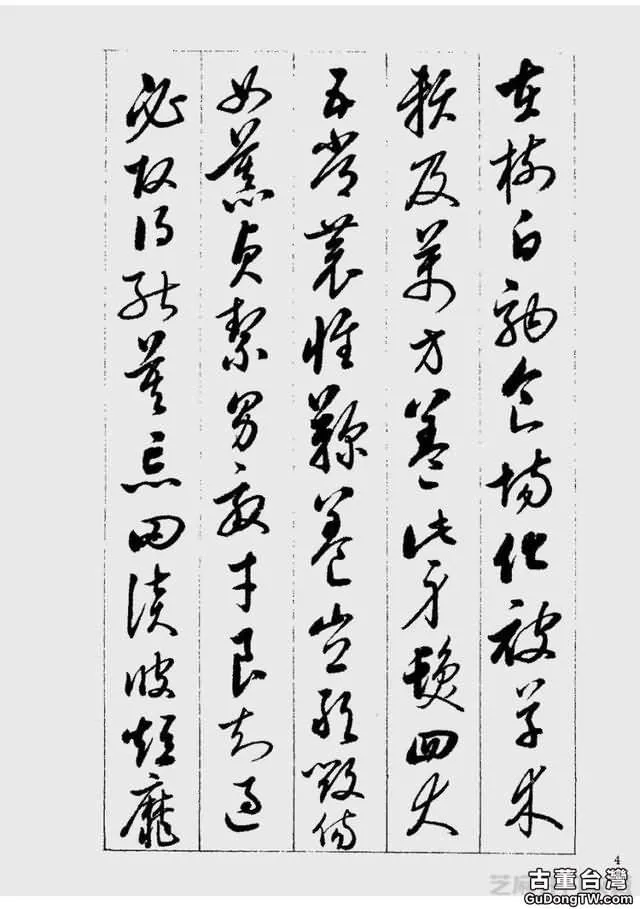 在樹白駒食場化被草木
賴及萬方蓋此身髮四大
五常恭惟鞠養豈敢毀傷
女慕貞絜男效才良知過
必改得能莫忘罔談彼短靡
4
古董台灣
GuDongTW.com